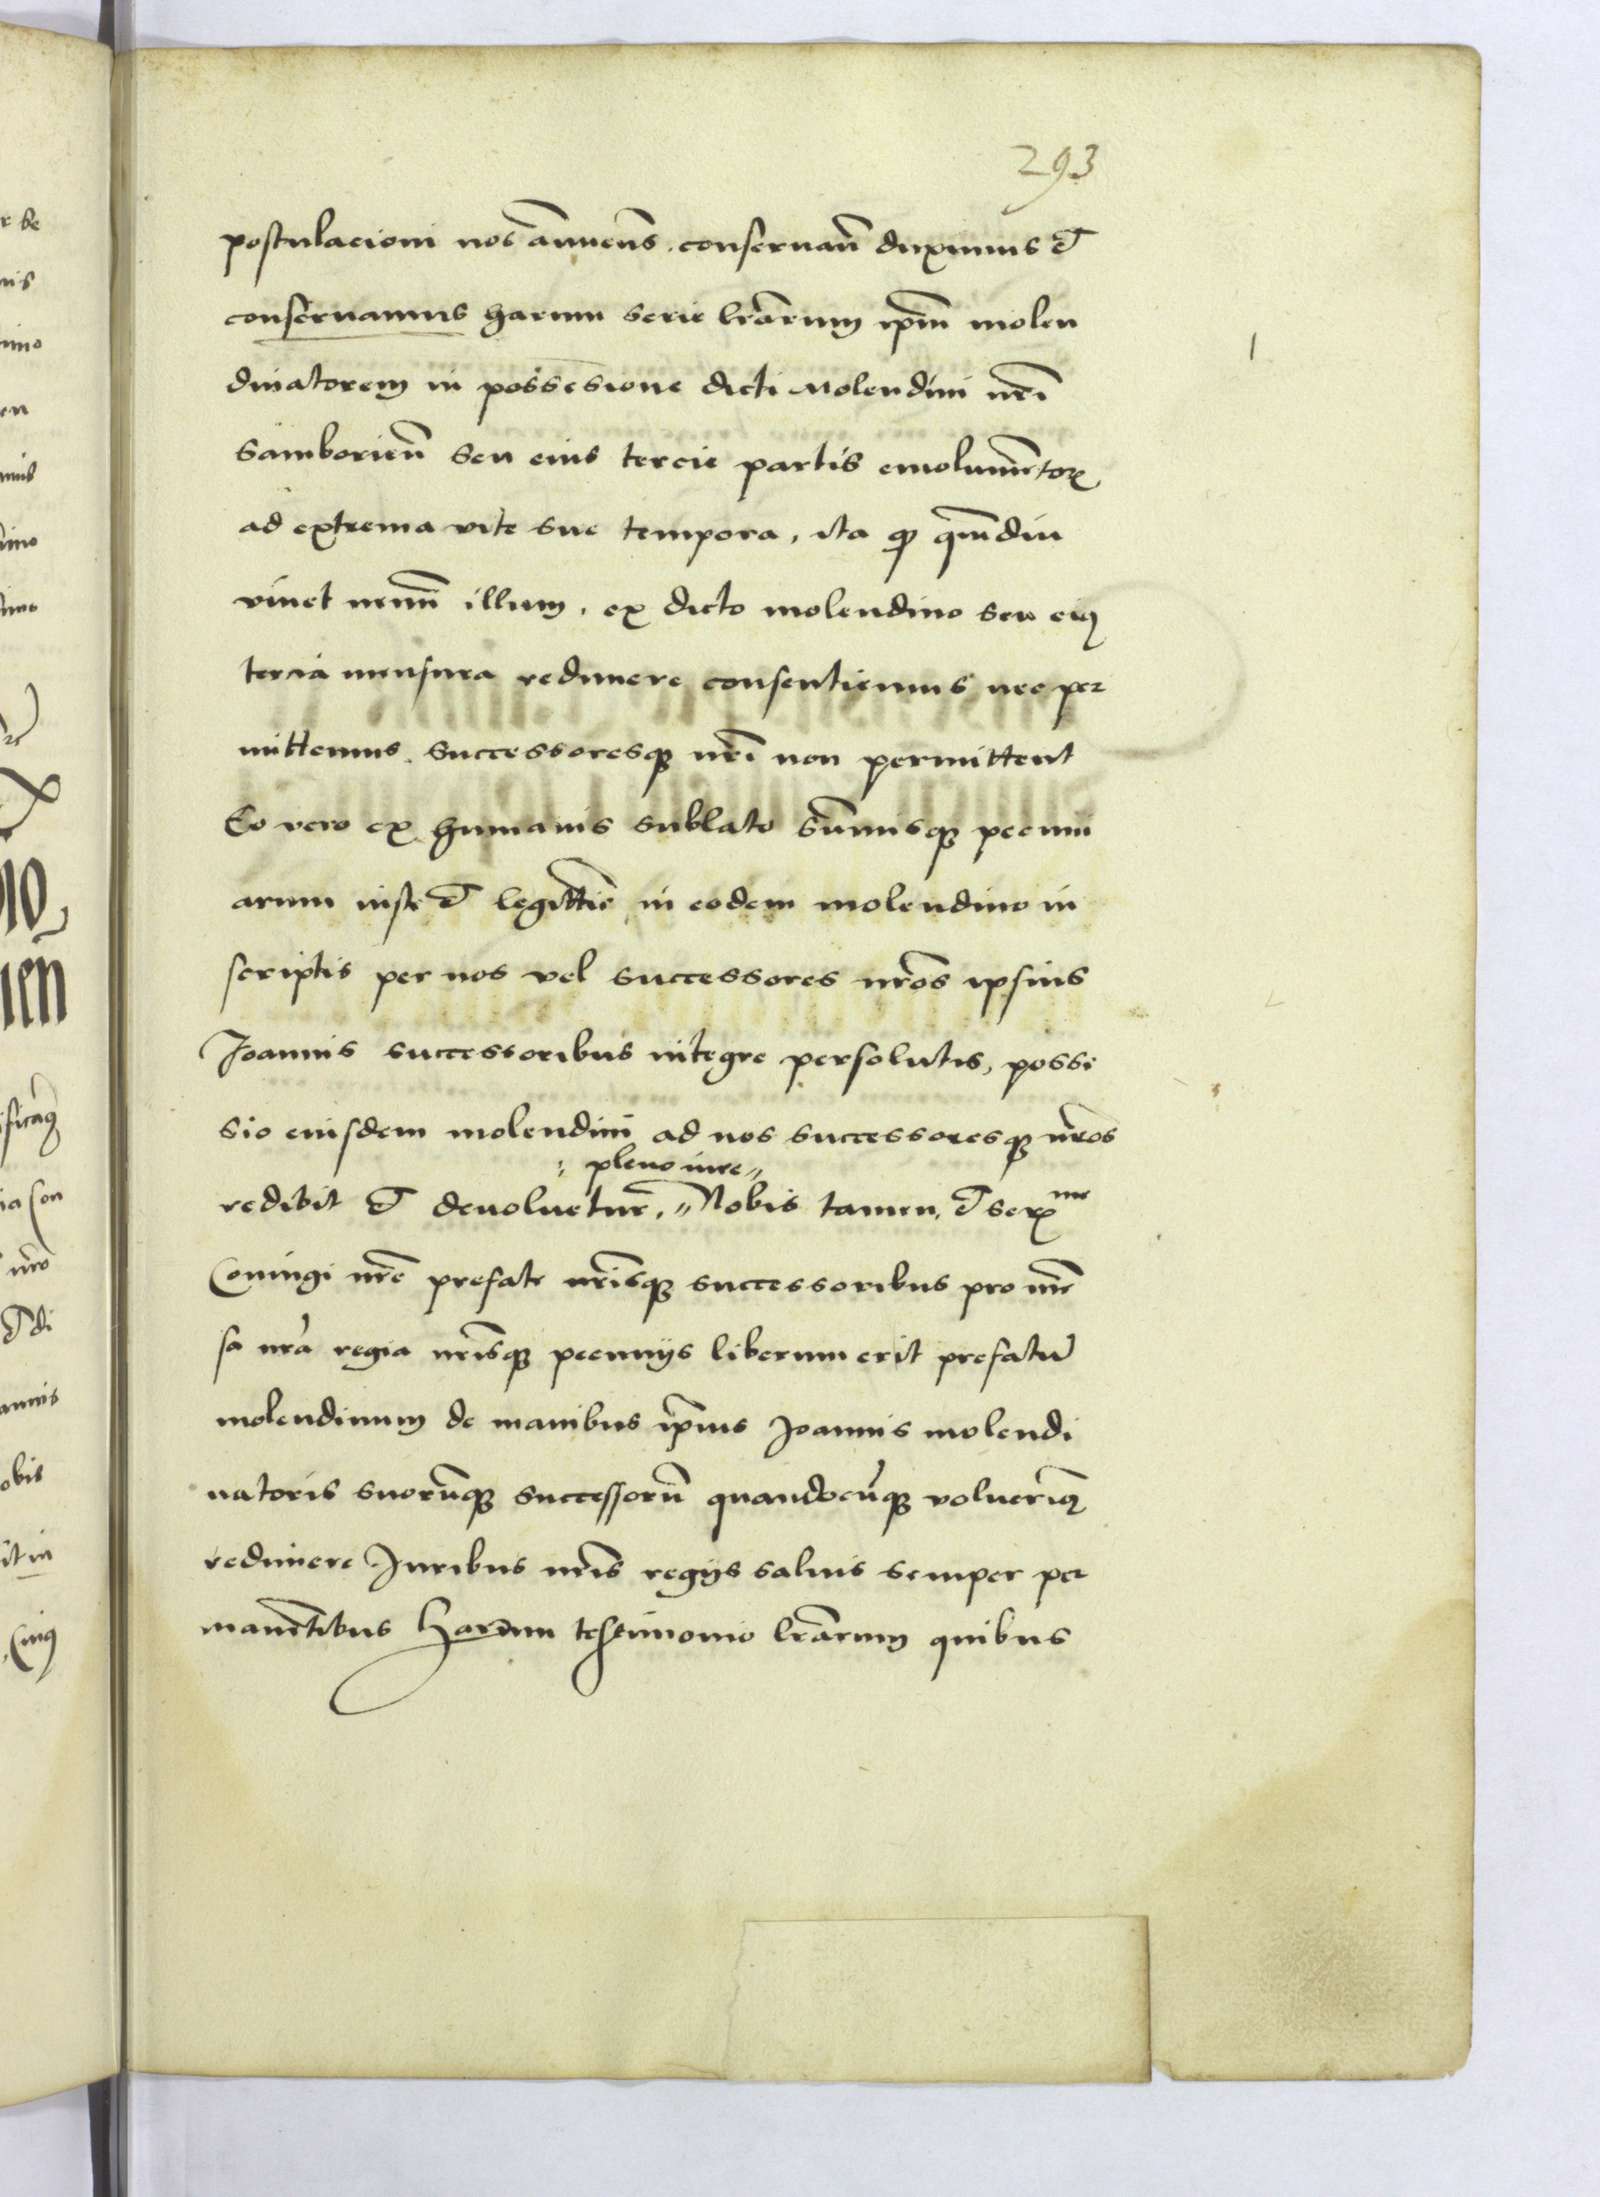 293
postulacioni nos̃ annuens̃ . conseruan̄ duximus et
conseruamus harum serie lr̃arum ip̃m molen
dinatorem in possessione dicti Molendini nr̃i
Samborien̄ seu eius tercie partis emolumẽtoꝝ
ad extrema vite sue tempora, ita ꝙ qm̃diu
viuet nem̃ illum, ex dicto molendino seu eiꝰ
tercia mensura redimere consentiemus nec per
mittemus . successoresqꝫ nr̃i non permittent
Eo vero ex humanis sublato sum̃isqꝫ pecuni
arum iuste et legittĩe in eodem molendino in
scriptis per nos vel successores nr̃os ipsius
Joannis successoribus integre persolutis, posse
sio eiusdem molendini ad nos successoresqꝫ nr̃os
pleno iure
redibit et deuoluetur̃, Nobis tamen, et Serᵐᵉ
Coniugi nr̃e prefate nr̃isqꝫ successoribus pro mẽ
sa nr̃a regia nr̃isqꝫ pecunijs liberum erit prefatũ
molendinum de manibus ip̃ius Joannis molendi
natoris suorũqꝫ successorũ quandocũqꝫ voluerimꝰ
redimere Juribus nr̃is regijs saluis semper per
manẽtibus Harum testimonio lr̃arum quibus